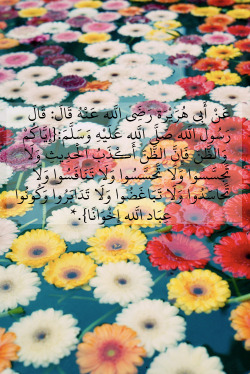 عَنْ أَبِي هُرَيْرَةَ رَضِيَ اللَّهِ عَنْهُ قَالَ: قَالَ
رَسُولُ اللَّهِ صَلَّى اللَّهِ عَلَيْهِ وَسَلَّمَ:{إِيَّاكُمْ
وَالظَّنَّ فَإِنَّ الظَّنَّ أَكْذَبُ الْحَدِيثِ وَلَا
تَحَسَّسُوا وَلَا تَجَسَّسُوا وَلَا تَنَافَسُوا وَلَا
تَحَاسَدُوا وَلَا تَبَاغَضُوا وَلَا تَدَابَرُوا وَكُونُوا
عِبَادَ اللَّهِ إِخْوَانًا}.*